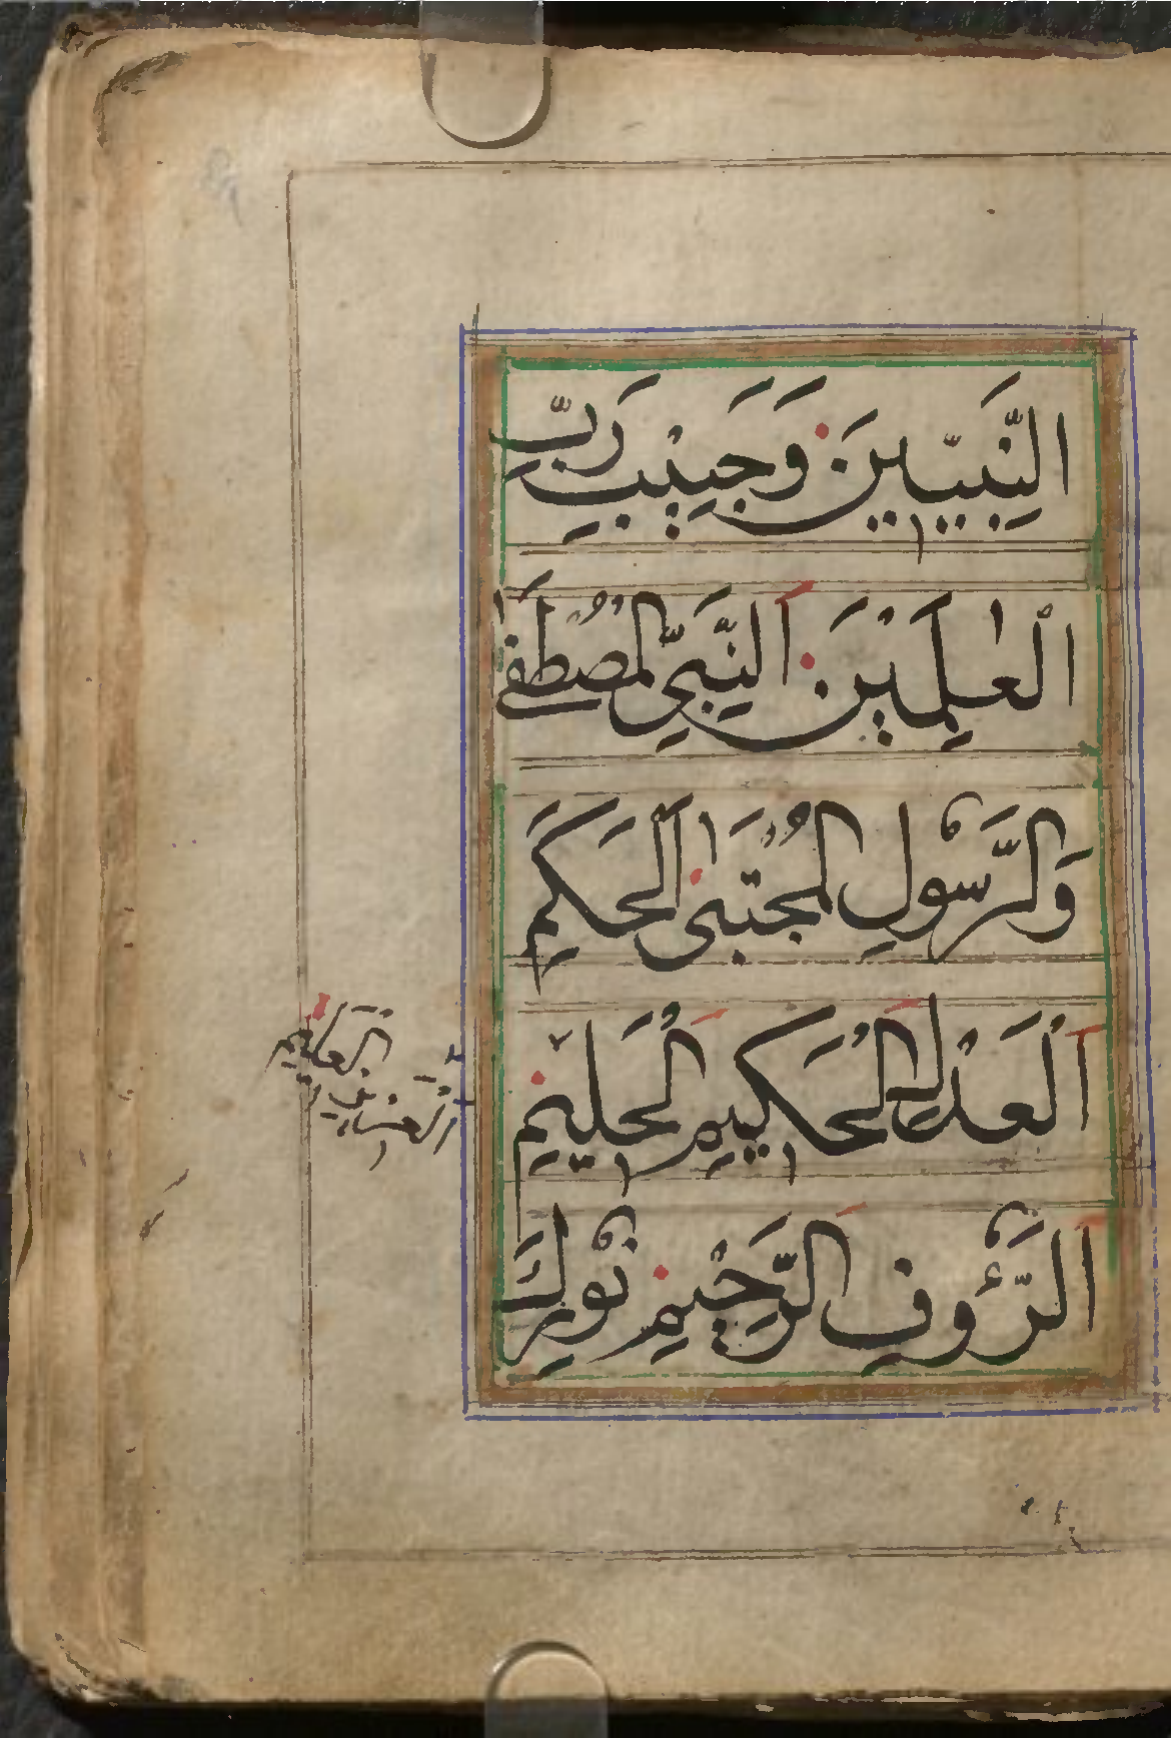 النَّبِيّٖينَ وَحَبِيْبِ رَبِّ
الْعٰلَمِيْنَ اَلنَّبِيِّ الْمُصْطَفٰى
وَالرَّسُوْلِ الْمُجْتَبٰى اَلْحَكَمِ
اَلْعَدْلِ اَلْحَكِيْمِ اَلْحَلِيْمِ
اَلرَّؤُوْفِ اَلرَّحِيْمِ نُوْرِكَ
اَلْعَزِيْزِ
الْعَظِيْمِ